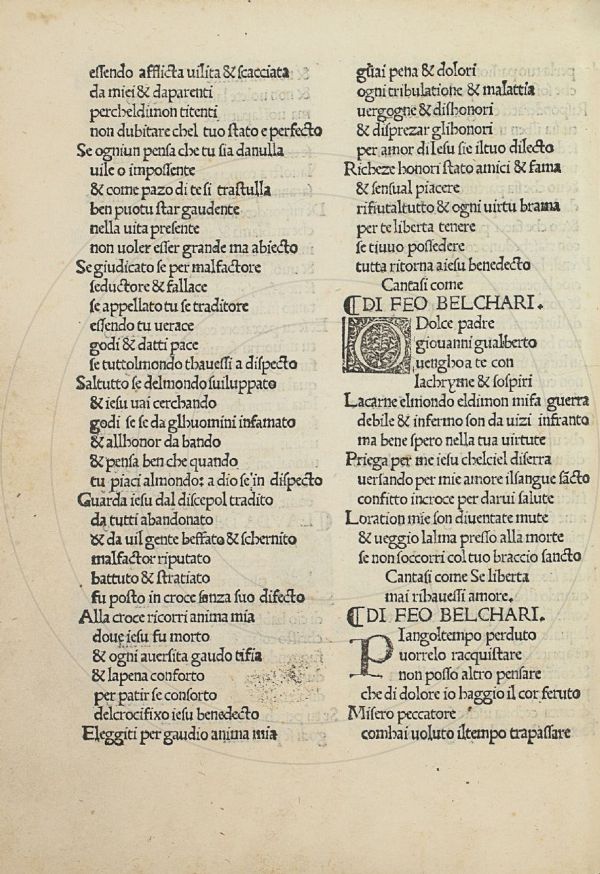 essendo afflicta uilita & scacciata
da miei & daparenti
percheldimon titenti
non dubitare chel tuo stato e perfecto
Se ogniun pensa che tu sia danulla
uile o impossente
& come pazo di te si trastulla
ben puotu star gaudente
nella uita presente
non uoler esser grande ma abiecto
Se giudicato se per malfactore
seductore & fallace
se appellato tu se traditore
essendo tu uerace
godi & datti pace
se tuttolmondo thauessi a dispecto
Saltutto se delmondo suiluppato
& iesu uai cerchando
godi se se da glhuomini infamato
& allhonor da bando
& pensa ben che quando
tu piaci almondo: a dio se'in dispecto
Guarda iesu dal discepol tradito
da tutti abandonato
& da uil gente beffato & schernito
malfactor riputato
battuto & stratiato
fu posto in croce senza suo difecto
Alla croce ricorri anima mia
doue iesu fu morto
& ogni auersita gaudo tifia
& lapena conforto
per patir se consorto
delcrocifixo iesu benedecto
Eleggiti per gaudio anima mia
guai pena & dolori
ogni tribulatione & malattia
uergogne & dishonori
& disprezar glihonori
per amor di Iesu sie iltuo dilecto
Richeze honori stato amici & fama
& sensual piacere
rifiutaltutto & ogni uirtu brama
per te liberta tenere
se tiuuo possedere
tutta ritorna aiesu benedecto
Cantasi come
¶DI FEO BELCHARI.
O Dolce padre
giouanni gualberto
uengho a te con
lachryme & sospiri
Lacarne elmondo eldimon mifa guerra
debile & infermo son da uizi infranto
ma bene spero nella tua uirtute
Priega per me iesu chelciel diserra
uersando per mie amore ilsangue sācto
confitto incroce per darui salute
Loration mie son diuentate mute
& ueggio lalma presso alla morte
se non soccorri col tuo braccio sancto
Cantasi come Se liberta
mai ribauessi amore.
¶DI FEO BELCHARI.
Piangoltempo perduto
uorrelo racquistare
non posso altro pensare
che di dolore io haggio il cor feruto
Misero peccatore
comhai uoluto iltempo trapassare